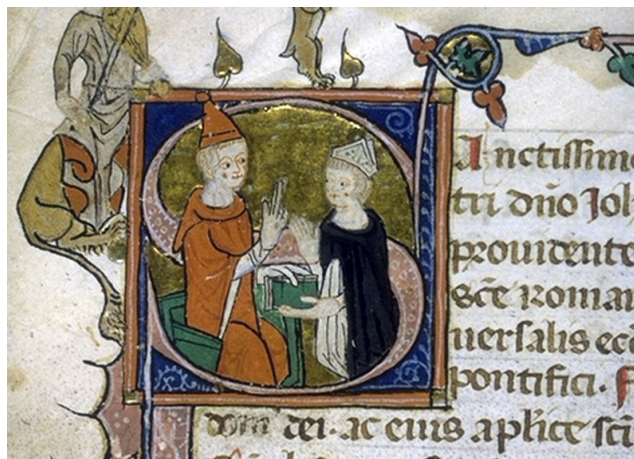 S
Anctissim
tri dño Joh
prouidente
scē roma
uersalis ecc
pontifici.
dei. ac eius aplice